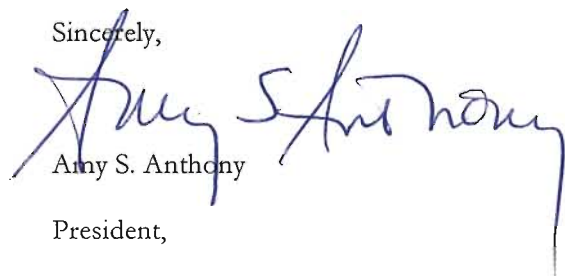 Sincerely,
Amy S Anthony
Amy S. Anthony
President,